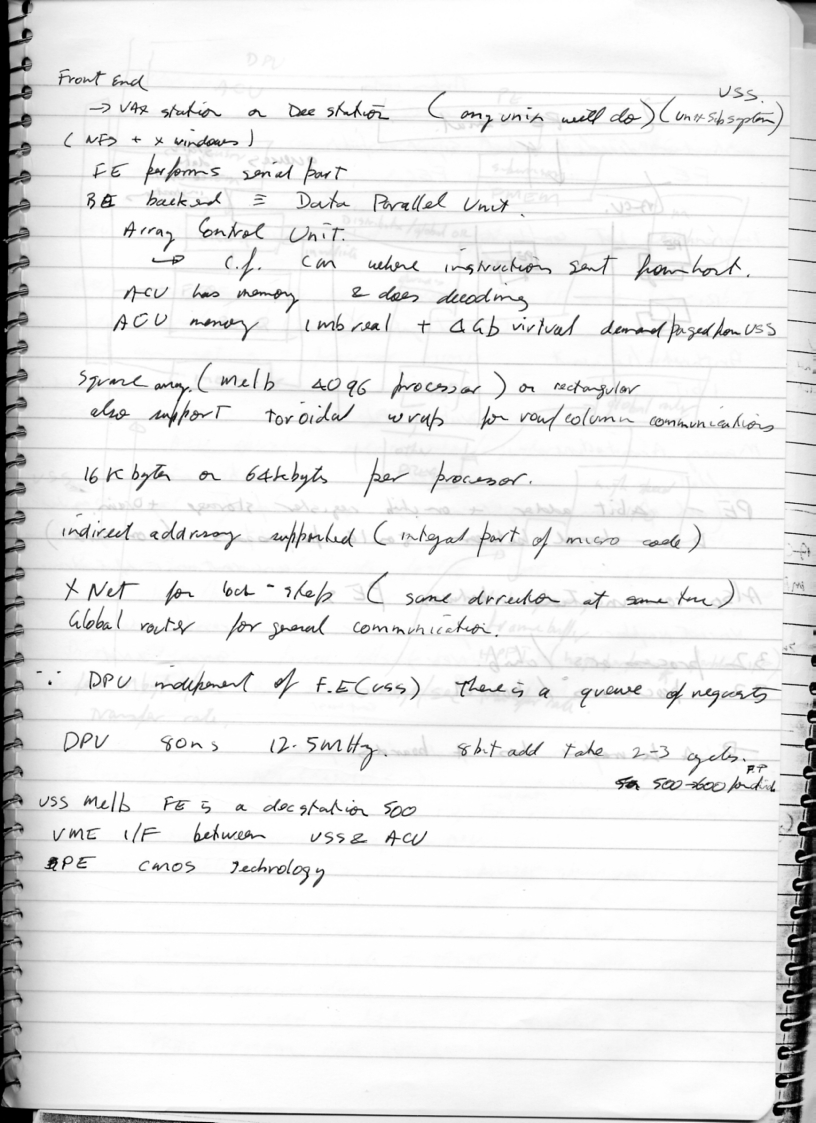 Front End
USS.
→ VAX station or Dec station (any unix will do) (Unix subsystem)
(NFS + X windows)
FE performs serial part
BE backend ≡ Data Parallel Unit.
Array Control Unit.
↳ c.f. CM where instructions sent from host.
ACU has memory & does decoding
ACU memory 1mb real + 4Gb virtual demand paged from USS
Square array. (Melb 4096 processor) or rectangular
also support toroidal wraps for row/column communications
16 K bytes or 64 kbyts per processor.
indirect addressing supported (integral part of micro code)
X Net for lock-step (same direction at same time)
Global router for general communication.
∵ DPU indepenent of F.E (USS) There is a queue of requests
DPU 80ns 12.5MHz. 8bit add take 2-3 cycles.
F.P
500→600 for
USS Melb FE is a decstation 500
VME I/F between USS & ACU
PE CMOS Technology